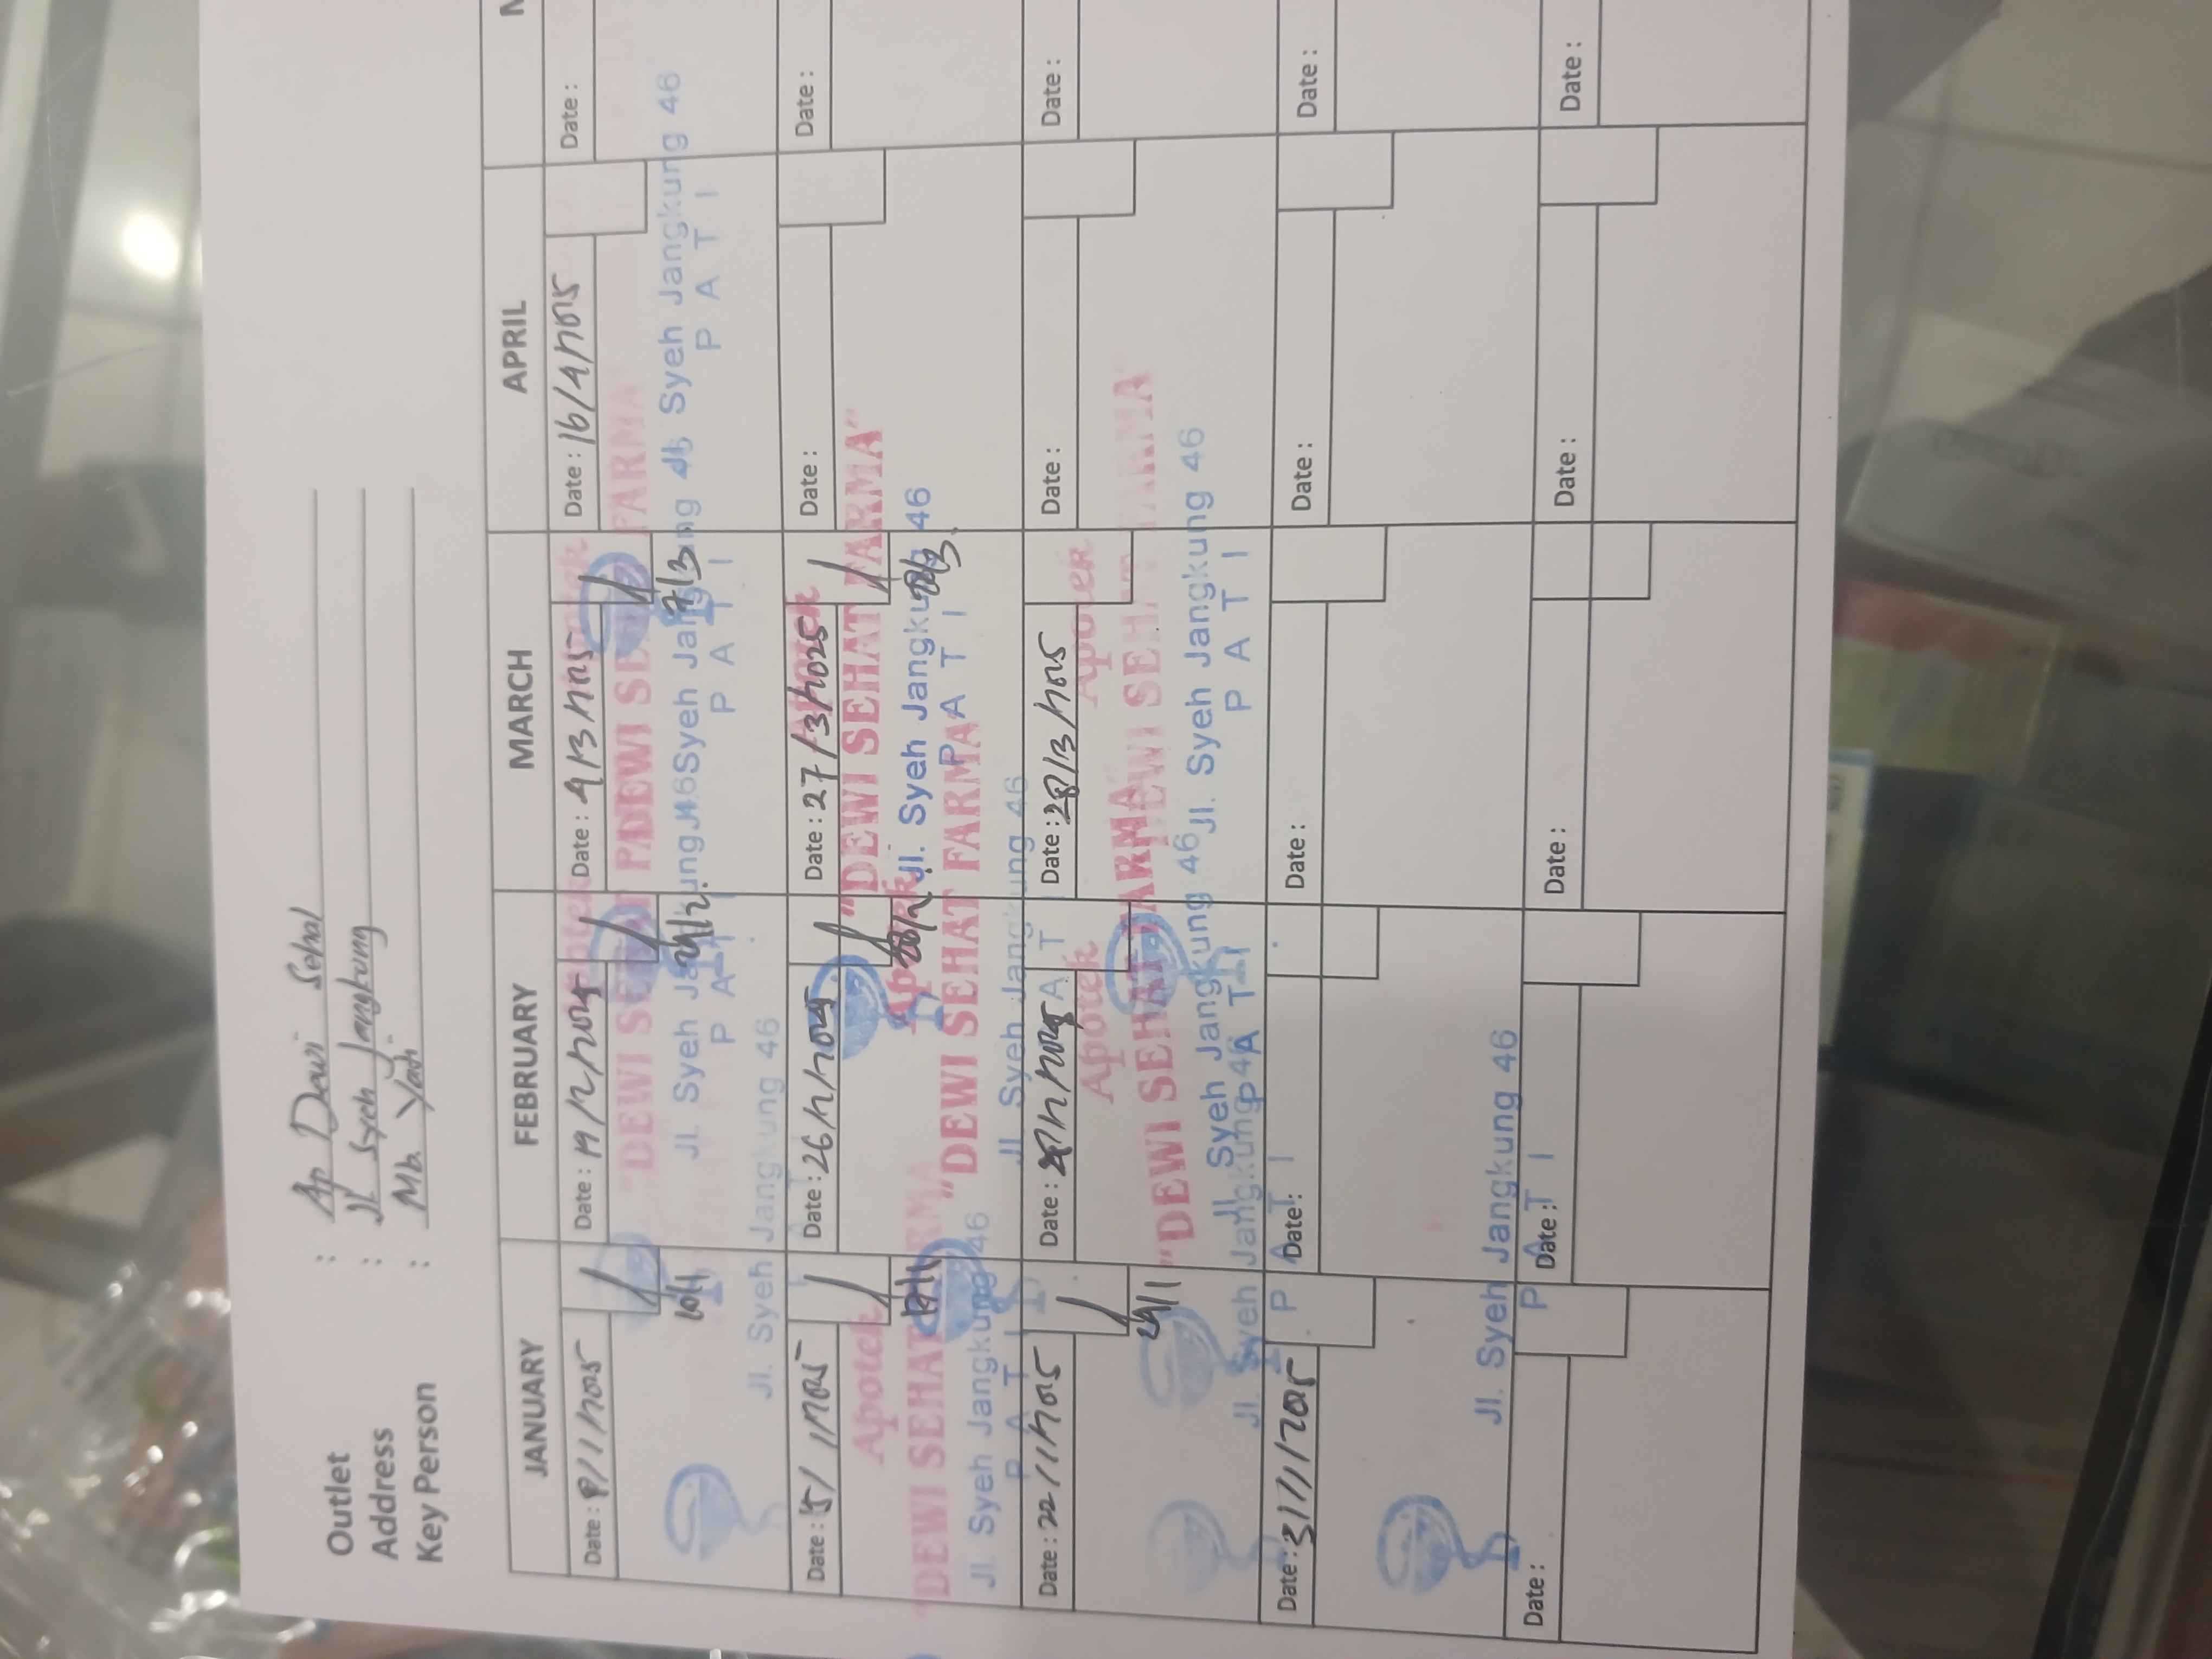 Outlet : Ap Dewi Sehat
Address : Jl Syeh Jangkung
Key Person : Mb. Yadi
JANUARY FEBRUARY MARCH APRIL
Date : 8/1/2025 Date : 19/2/2025 Date : 4/3/2025 Date : 16/4/2025 Date :
10/1 21/2. 7/3
"DEWI SEHAT FARMA"
Jl. Syeh Jangkung 46
P A T I
Date : 15/1/2025 Date : 26/2/2025 Date : 27/3/2025 Date : Date :
Apotek
"DEWI SEHAT FARMA"
Jl. Syeh Jangkung 46
P A T I
Date : 22/1/2025 Date : Date : 28/3/2025 Date : Date :
24/1
Apotek
"DEWI SEHAT FARMA"
Jl. Syeh Jangkung 46
P A T I
Date : 31/1/2025 Date : Date : Date : Date :
Jl. Syeh Jangkung 46
P A T I
Date : Date : Date : Date : Date :